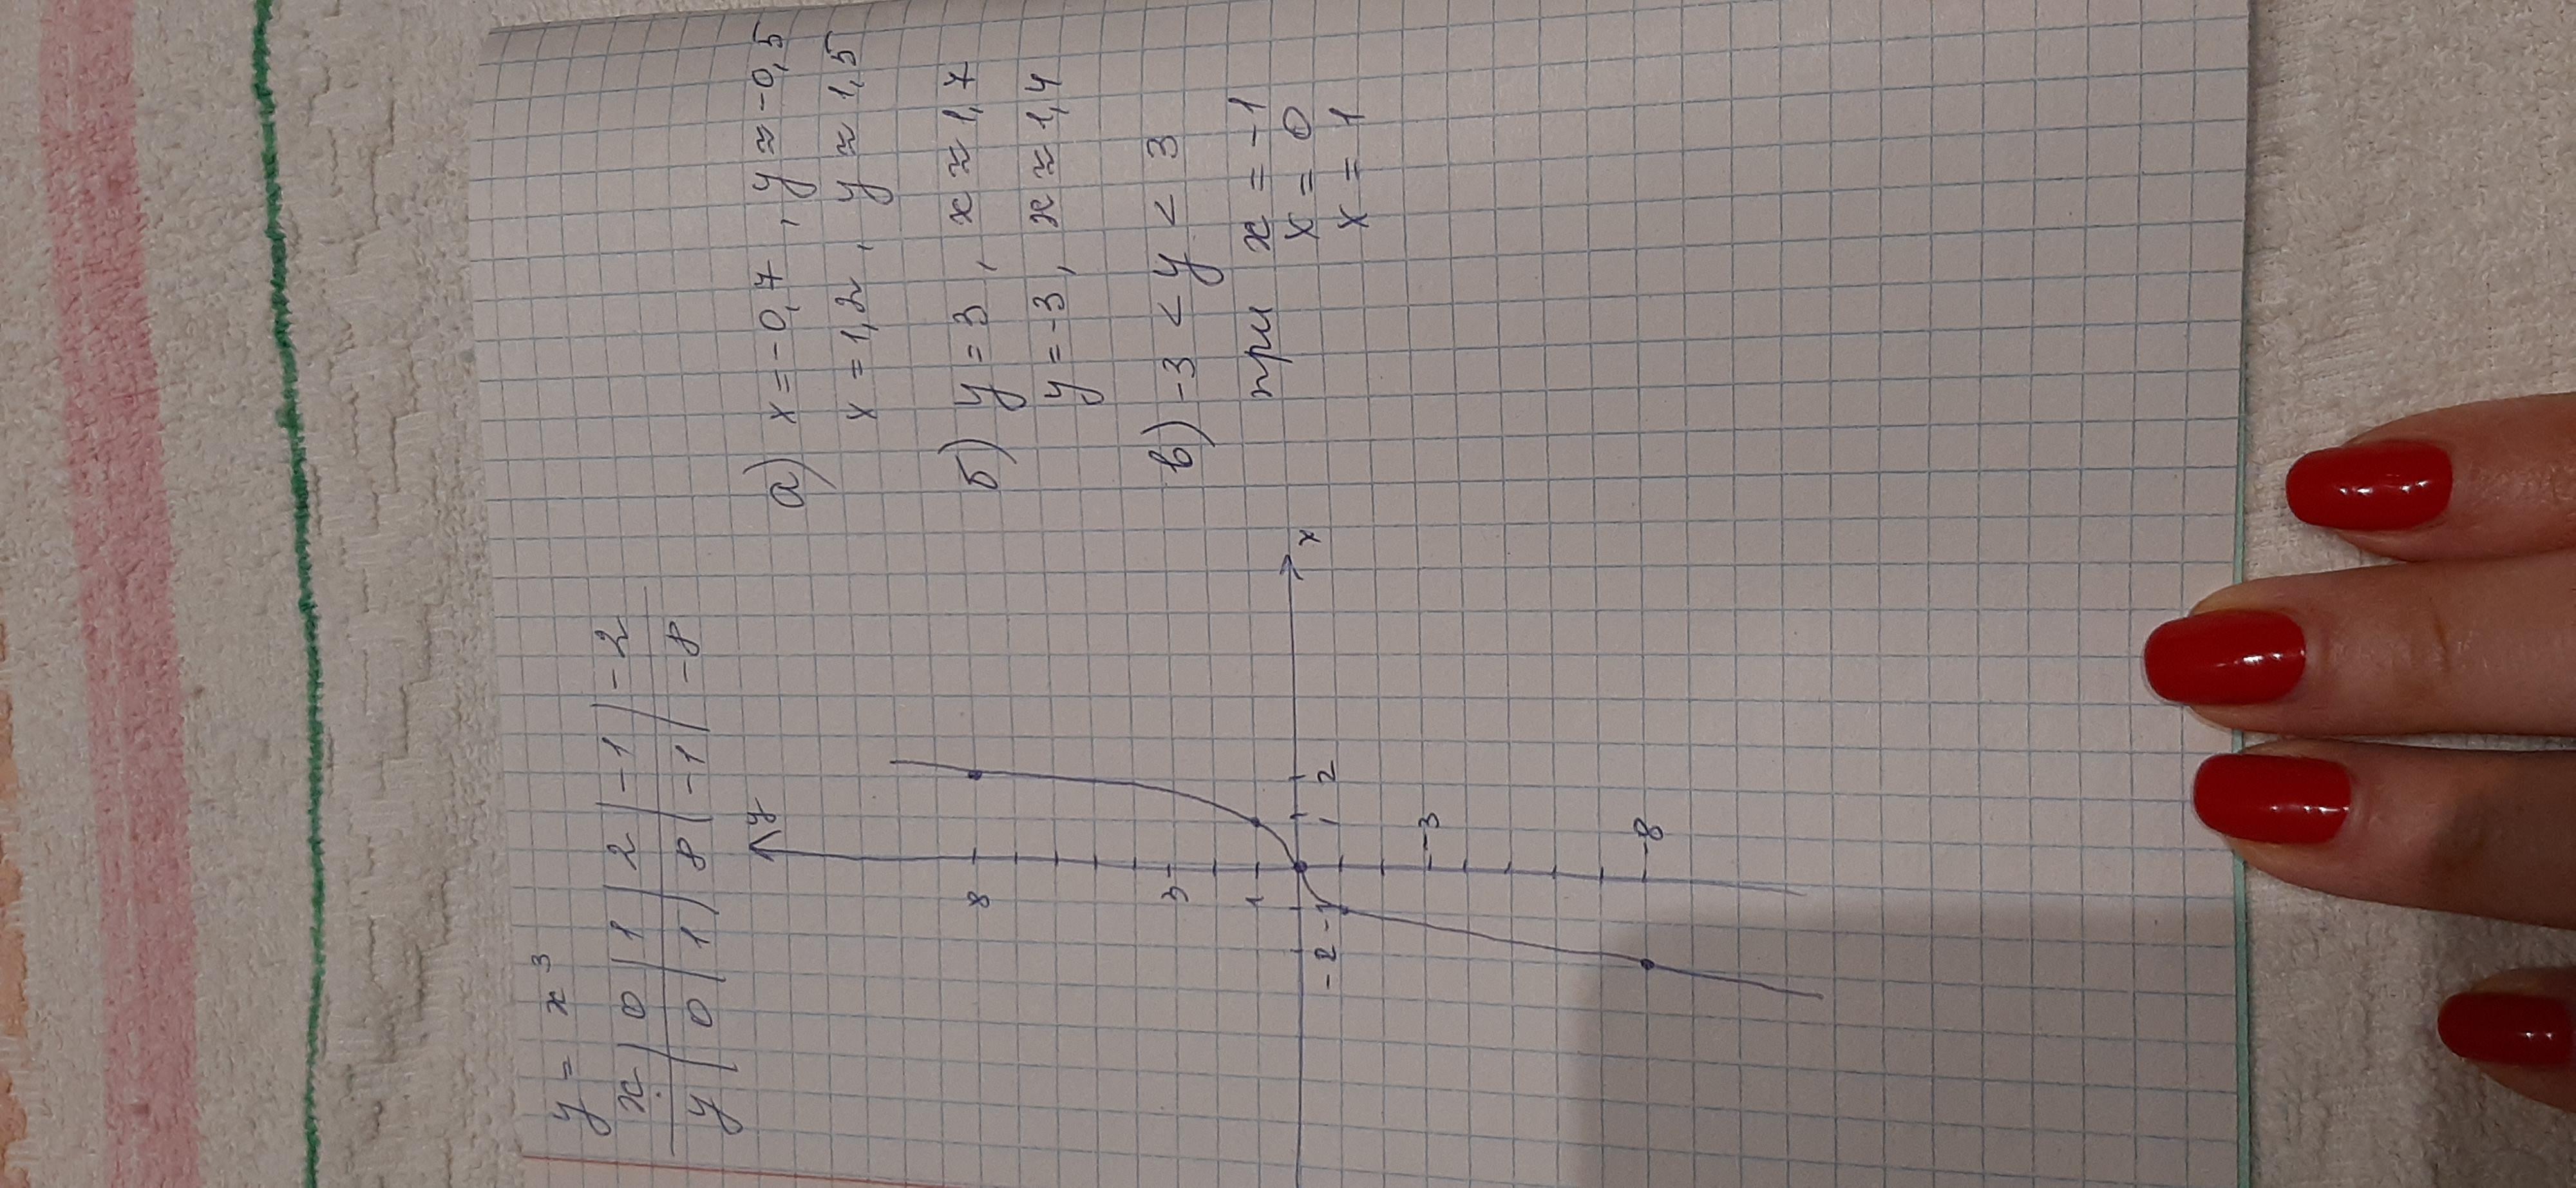 y = x³
x | 0 | 1 | 2 | -1 | -2
y | 0 | 1 | 8 | -1 | -8
y
8
3
1
-2 -1 1 2
x
-3
-8
а) x = -0,7 , y ≈ -0,5
x = 1,2 , y ≈ 1,5
б) y = 3 , x ≈ 1,7
y = -3 , x ≈ 1,4
в) -3 < y < 3
при x = -1
x = 0
x = 1